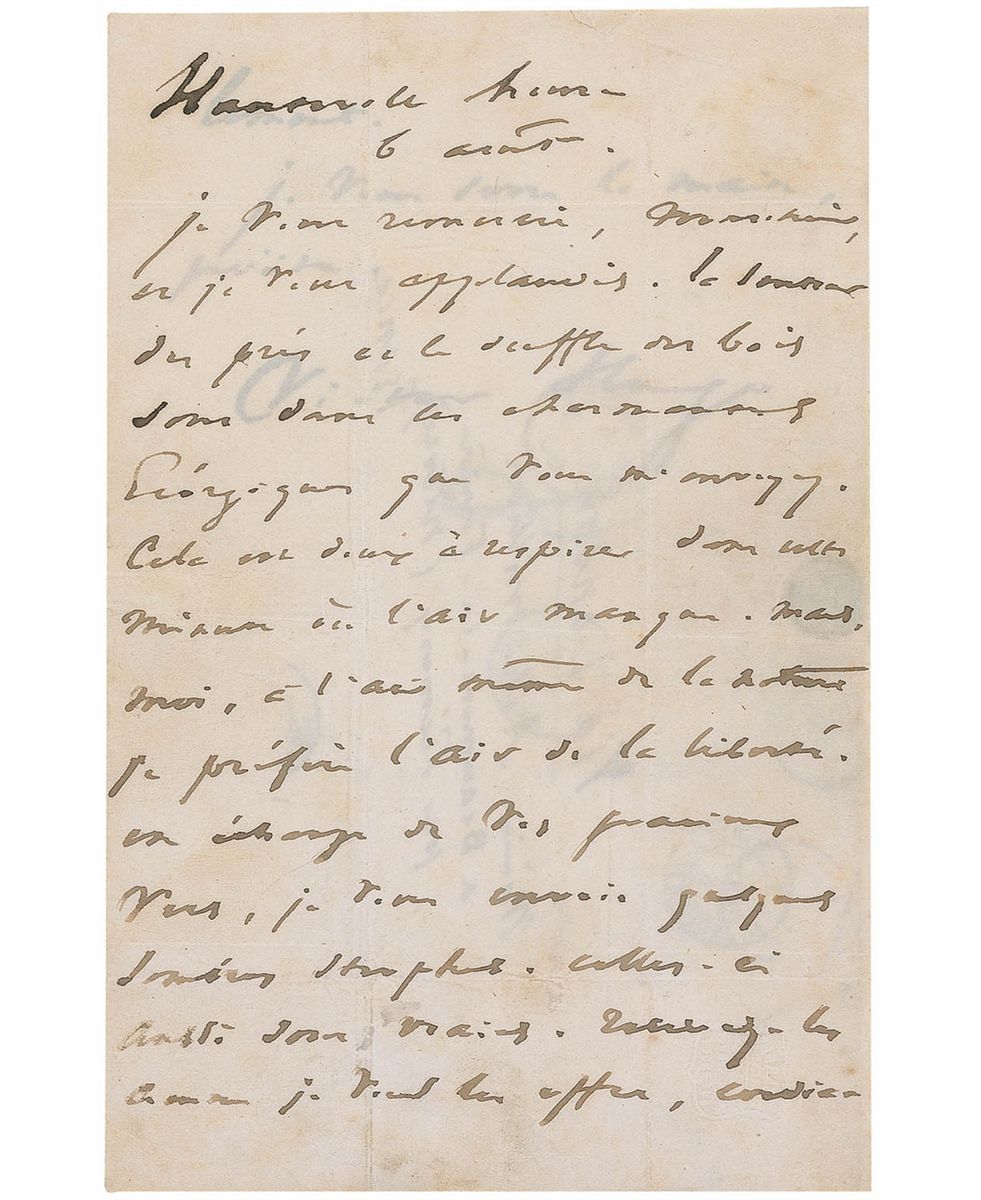 Hauteville house
6 août.
je vous remercie, Monsieur,
et je vous applaudis. la senteur
des prés et le souffle des bois
sont dans les charmantes
Géorgiques que vous m'envoyez.
Cela est doux à respirer dans cette
minute où l'air manque. mais,
moi, à l'air même de la nature
je préfère l'air de la liberté.
en échange de vos gracieux
vers, je vous envoie quelques
sombres strophes. celles-ci
aussi sont vraies. recevez-les
comme je vous les offre, cordia-